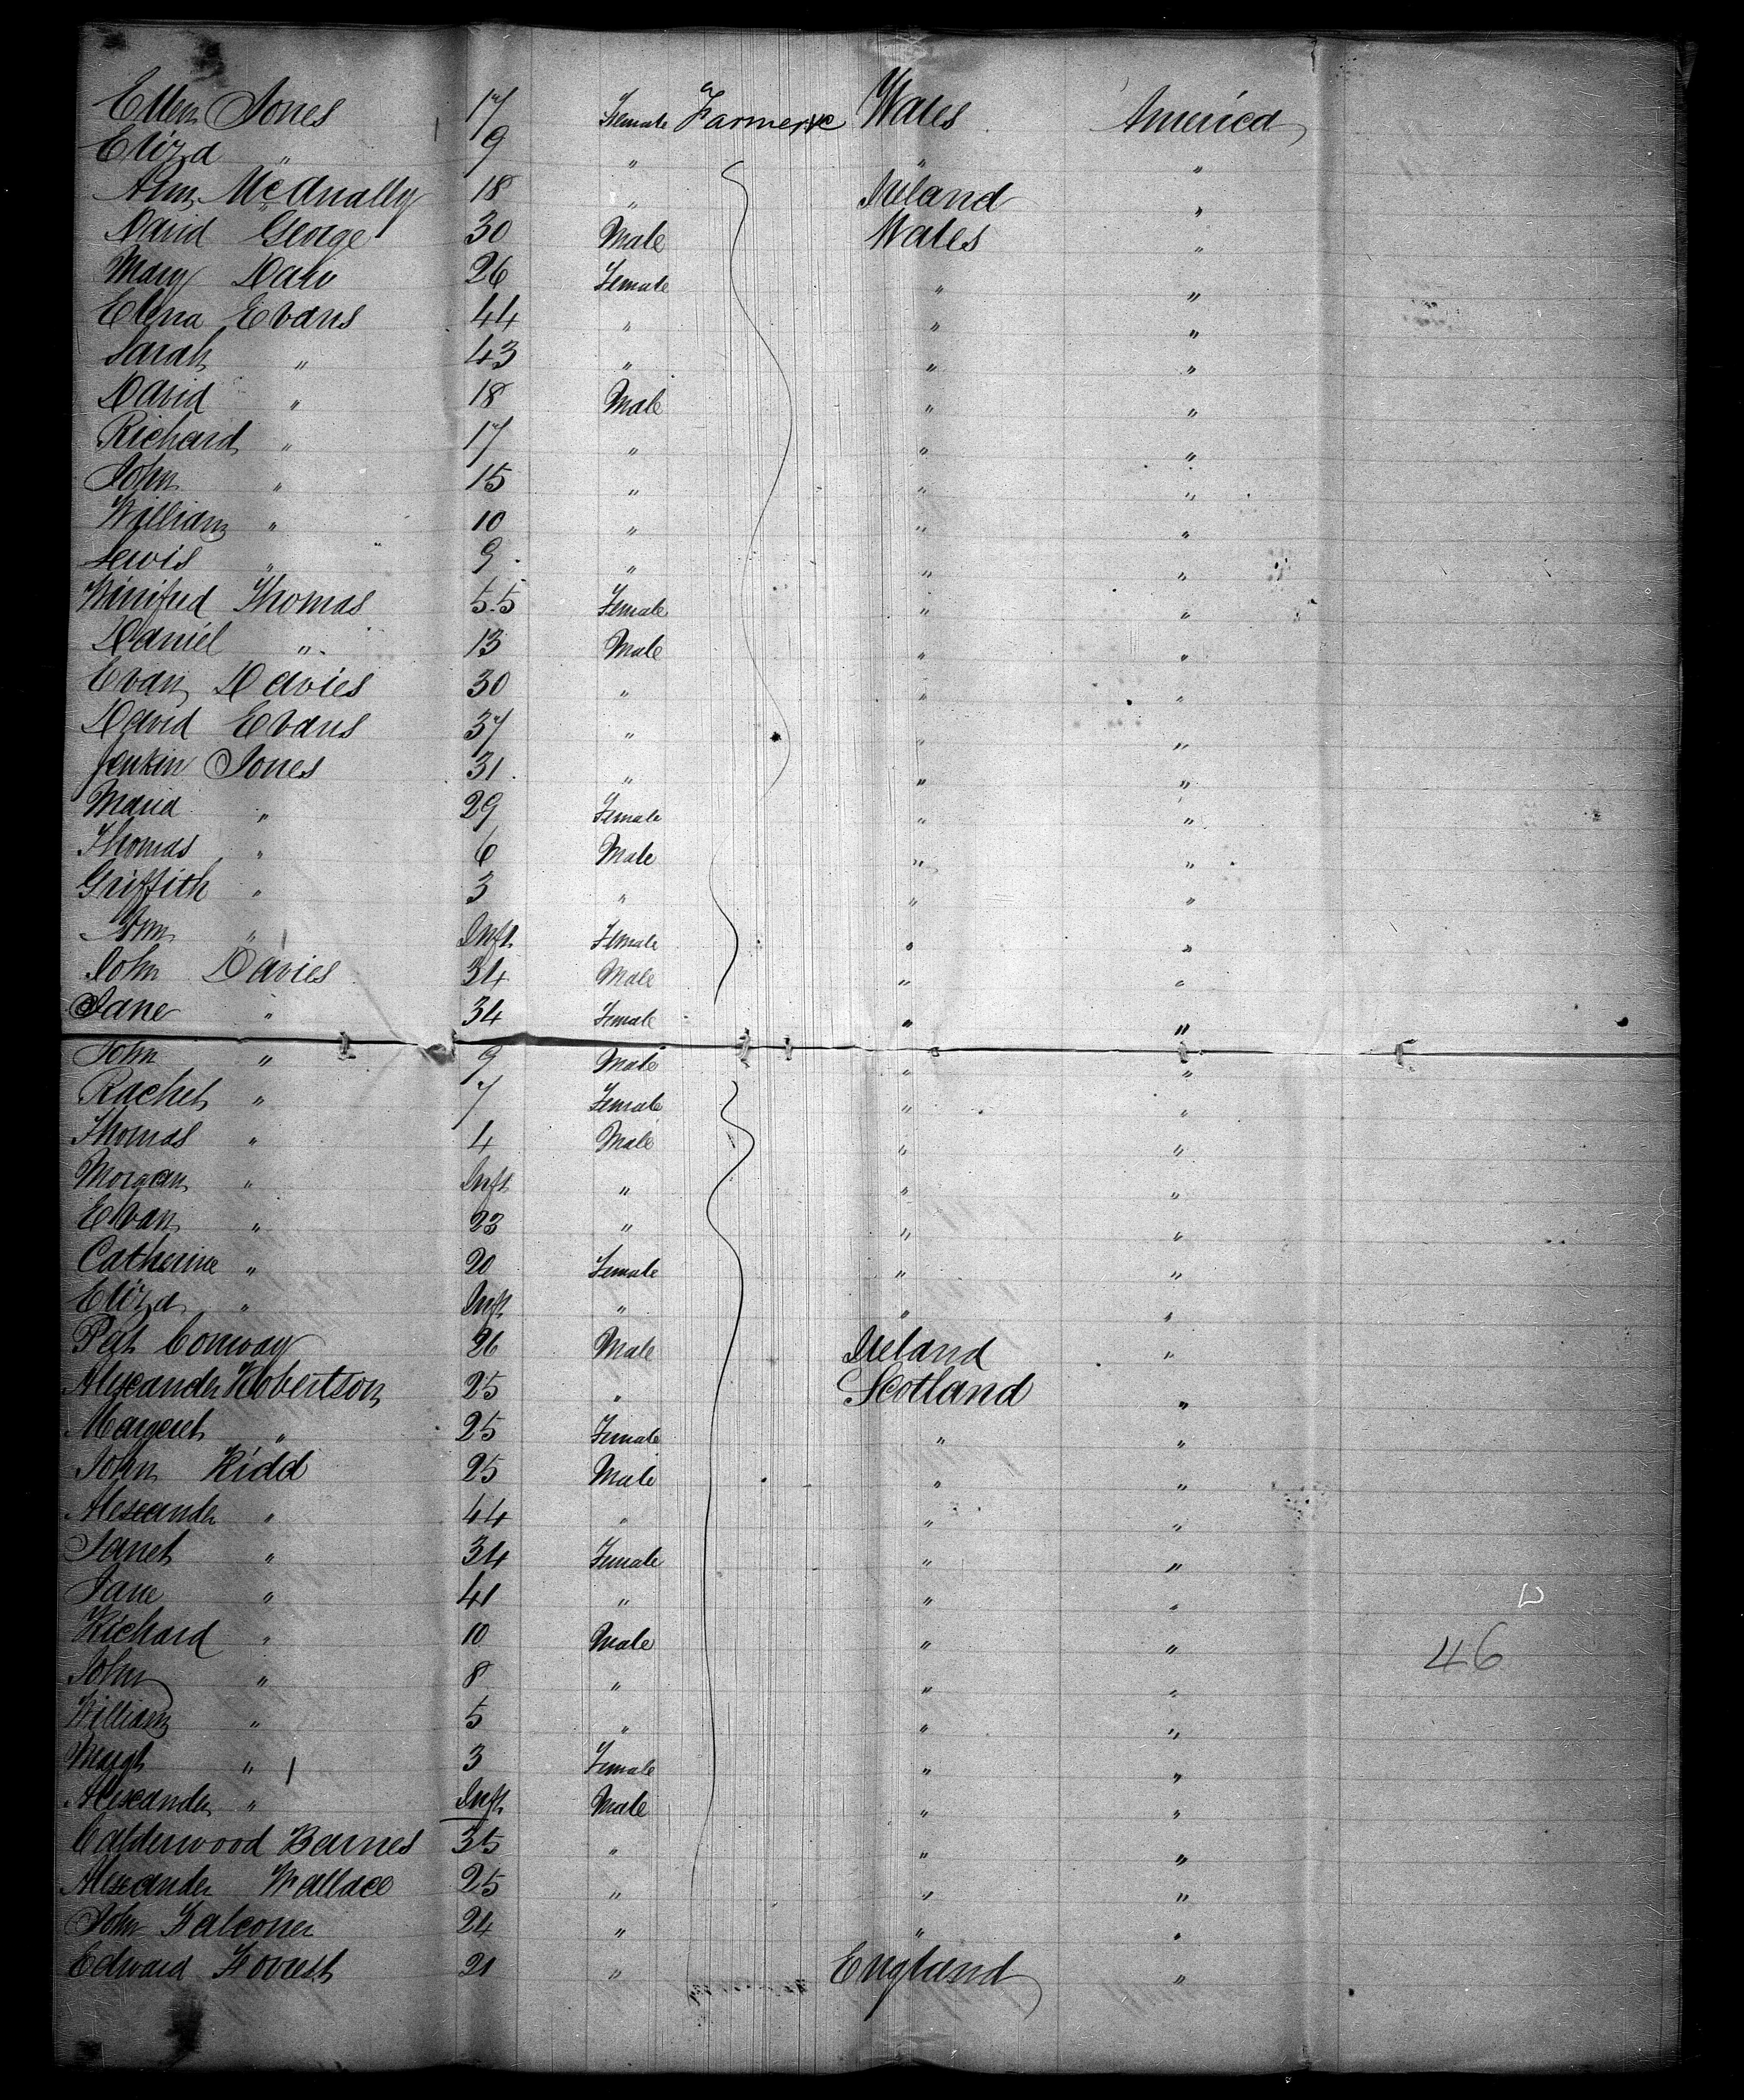 Ellen Jones 17 Female Farmer &c Wales America
Eliza " 9 " " "
Ann McAnally 18 " Ireland "
David George 30 Male Wales "
Mary 26 Female " "
Elena Evans 44 " " "
Sarah " 43 " " "
David " 18 Male " "
Richard " 17 " " "
John " 15 " " "
William " 10 " " "
Lewis " 9 " " "
Winifred Thomas 55 Female " "
Daniel " 13 Male " "
Evan Davies 30 " " "
David Evans 37 " " "
Jenkin Jones 31 " " "
Maria " 29 Female " "
Thomas " 6 Male " "
Griffith " 3 " " "
Ann " Inft Female " "
John Davies 34 Male " "
Jane " 34 Female " "
John " 9 Male " "
Rachel " 7 Female " "
Thomas " 4 Male " "
Morgan " Inft " " "
Evan " 23 " " "
Catherine " 20 Female " "
Eliza " Inft " " "
Conway 26 Male Ireland "
Alexander Robertson 25 " Scotland "
Margeret " 25 Female " "
John Kidd 25 Male " "
Alexander " 44 " " "
Janet " 34 Female " "
Jane " 41 " " "
Richard " 10 Male " " 46
John " 8 " " "
William " 5 " " "
Margt " 3 Female " "
Alexander " Inft Male " "
Calderwood Barnes 35 " " "
Alexander Wallace 25 " " "
John Falconer 24 " " "
Edward Forrest 21 " England "